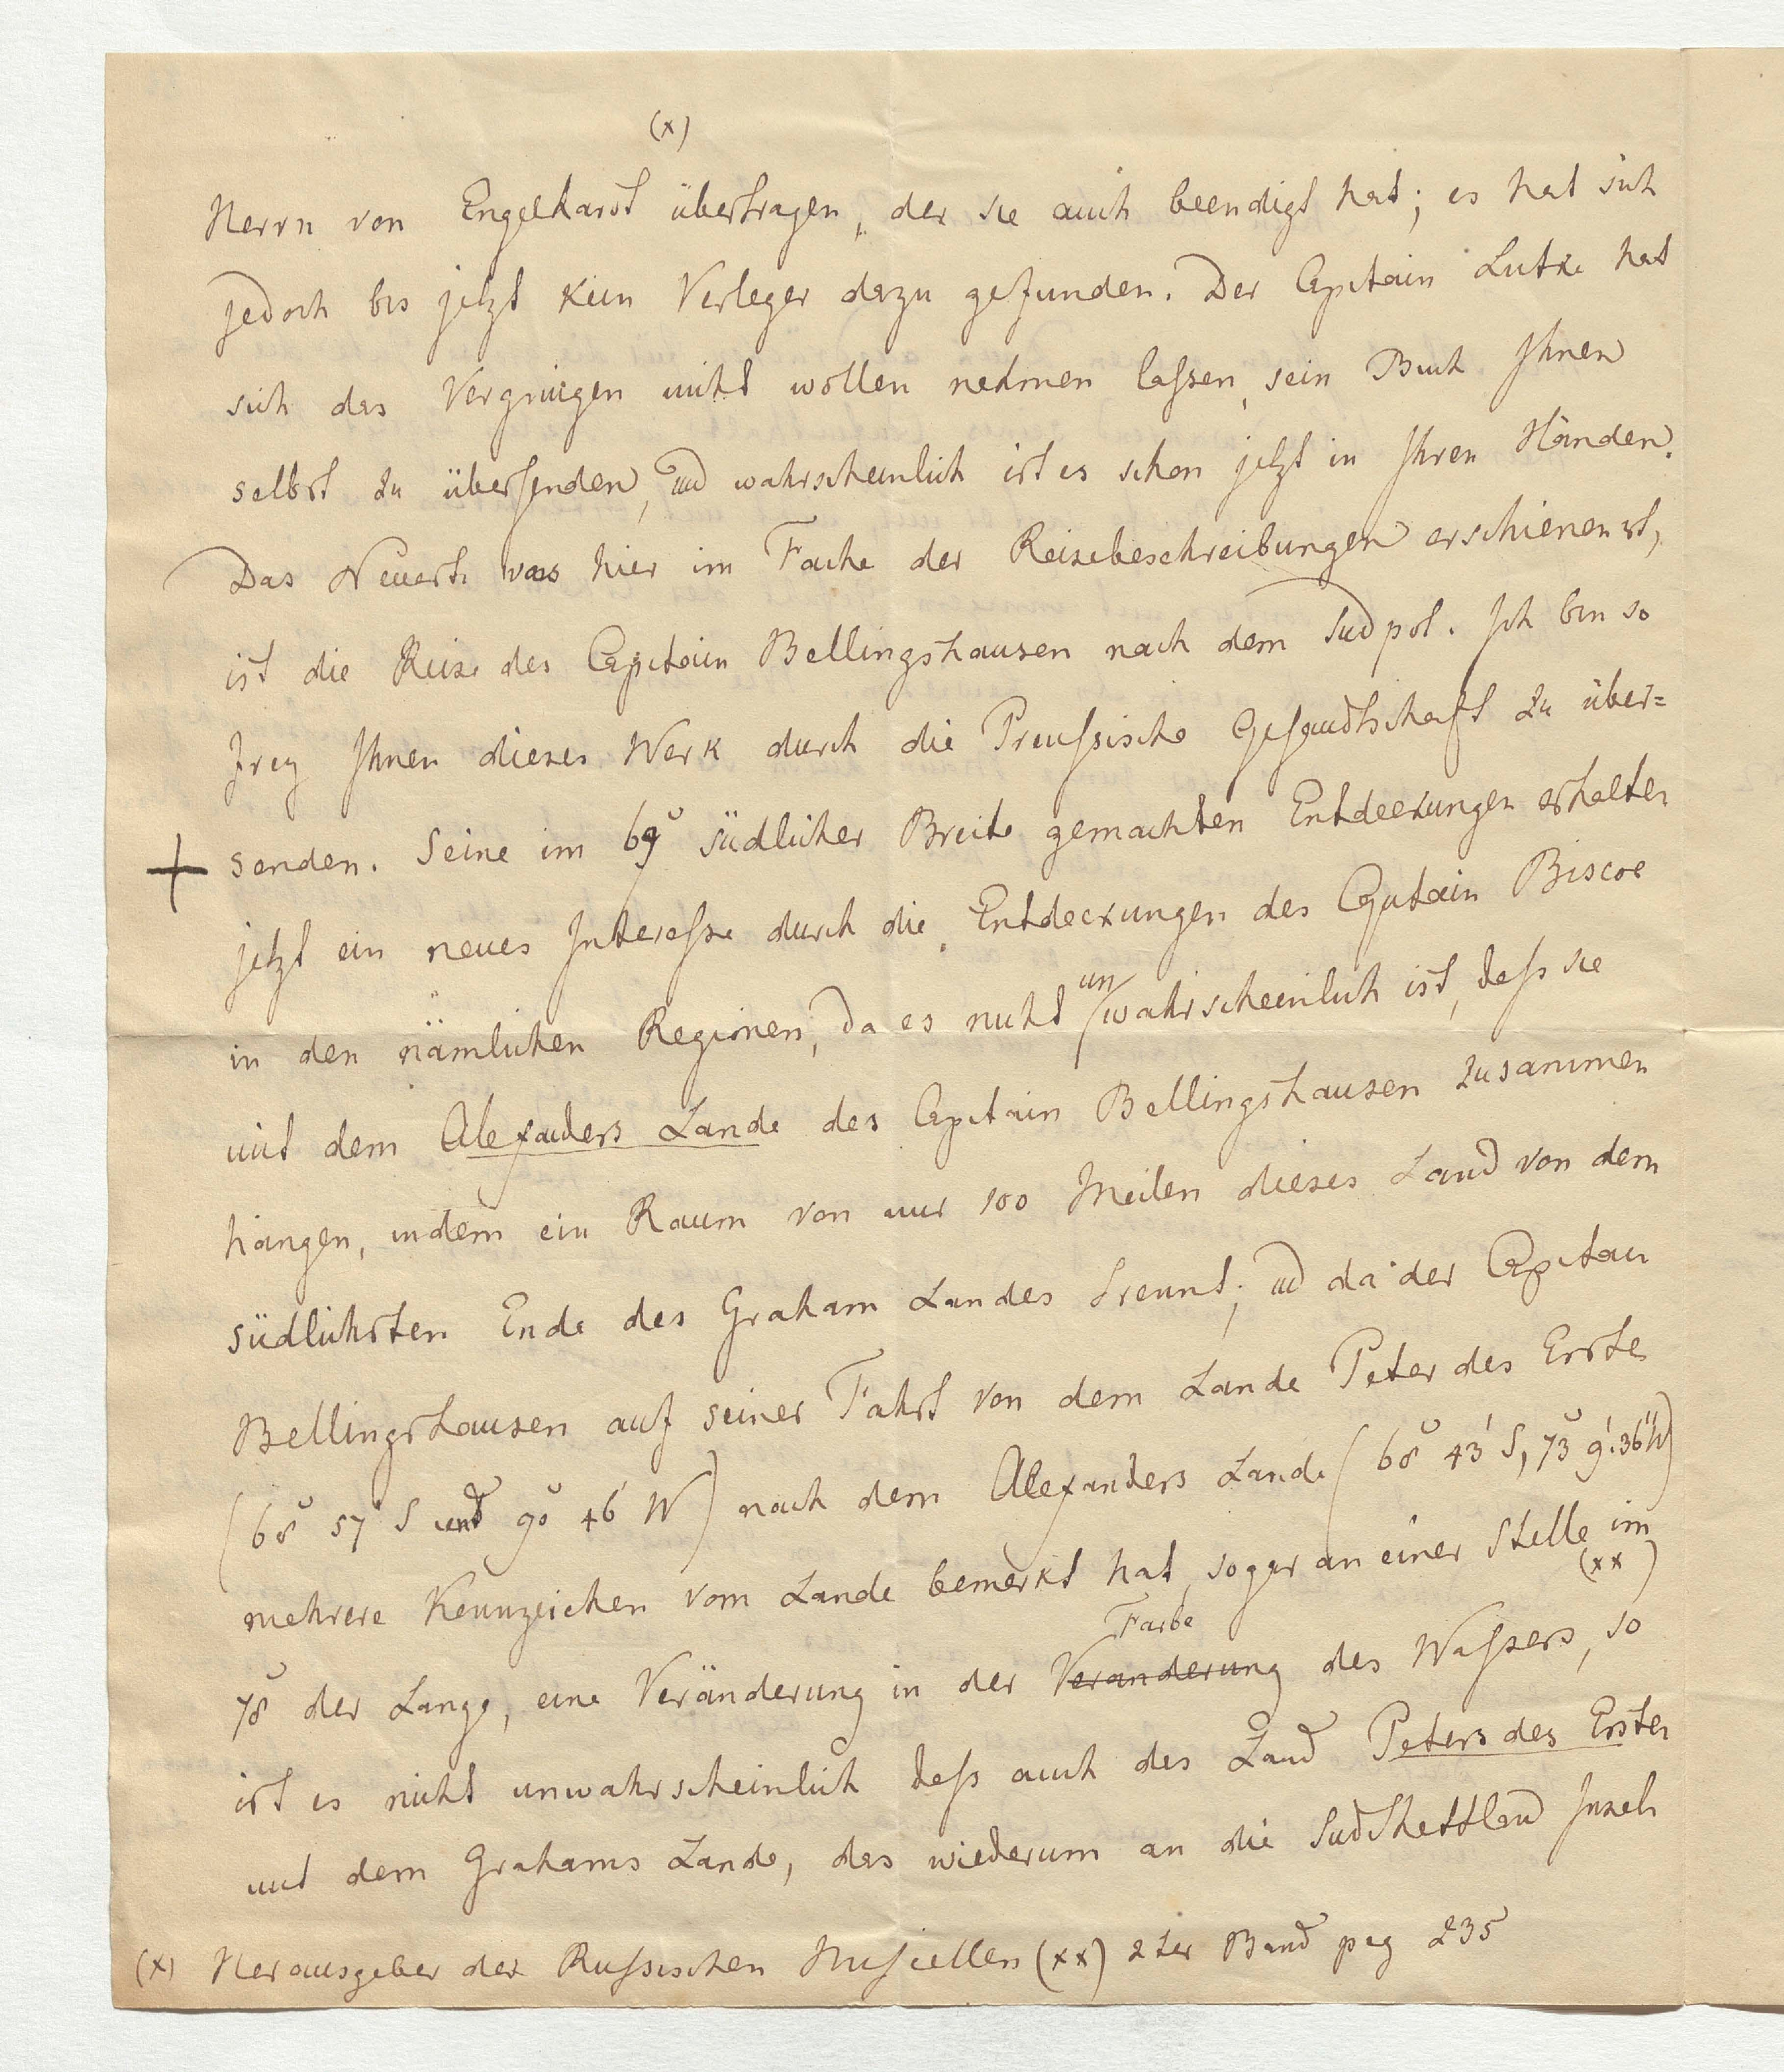 (x)
Herrn von Engelhardt übertragen, der sie auch beendigt hat; es hat sich
jedoch bis jetzt kein Verleger dazu gefunden. Der Capitain Lutke hat
sich das Vergnügen nicht wollen nehmen laßen, sein Buch Ihnen
selbst zu übersenden, und wahrscheinlich ist es schon jetzt in Ihren Händen.
Das Neueste was hier im Fache der Reisebeschreibungen erschienen ist,
ist die Reise des Capitain Bellingshausen nach dem Südpol. Ich bin so
frey Ihnen dieses Werk durch die Preußische Gesandtschaft zu über=
senden. Seine im 69° südlicher Breite gemachten Entdeckungen erhalten
jetzt ein neues Intereße durch die Entdeckungen des Capitain Biscoe
in den nämlichen Regionen, da es nicht unwahrscheinlich ist, daß sie
mit dem Alexanders Lande des Capitain Bellingshausen zusammen
hängen, indem ein Raum von nur 100 Meilen dieses Land von dem
südlichsten Ende des Graham Landes trennt; und da der Capitain
Bellingshausen auf seiner Fahrt von dem Lande Peter des Ersten
(68° 57' S und 90° 46' W) nach dem Alexanders Lande (68° 43' S, 73° 9' 36" W)
mehrere Kennzeichen vom Lande bemerkt hat, sogar an einer Stelle im
(xx)
78° der Lange, eine Veränderung in der Veranderung Farbe des Waßers, so
ist es nicht unwahrscheinlich daß auch das Land Peters des Ersten
mit dem Grahams Lande, das wiederum an die SüdShettland Inseln
(x) Herausgeber der Rußischen Miscellen (xx) 2ter Band pag 235